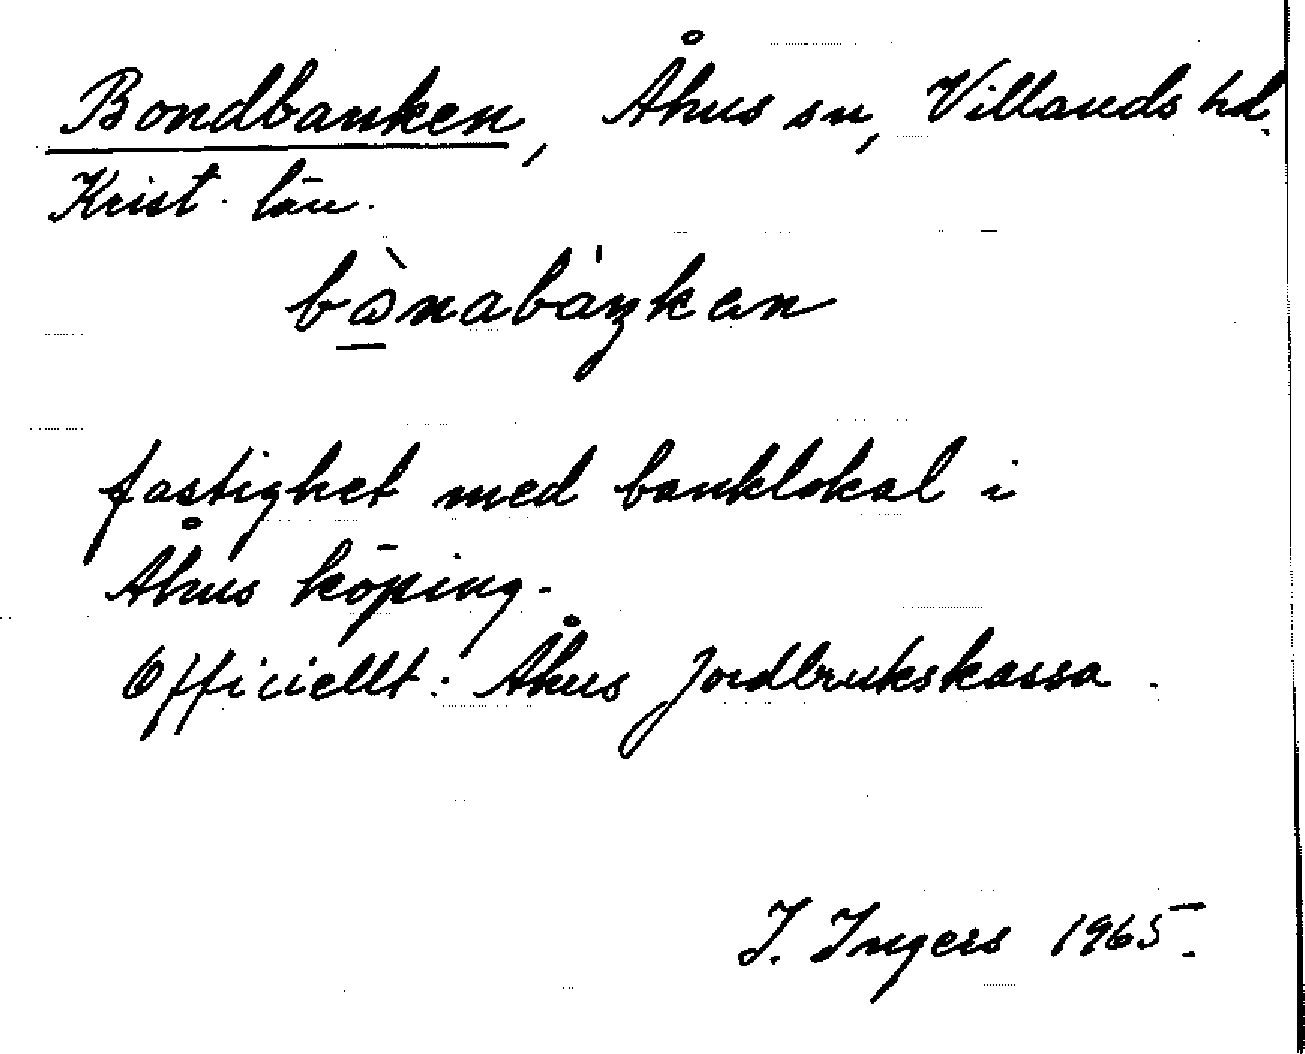 Bondbanken, Åhus sn, Villands hd.
Krist. län.
bå̀nabáŋkan
fastighet med banklokal i
Åhus köping.
Officiellt: Åhus Jordbrukskassa.
I. Ingers 1965.